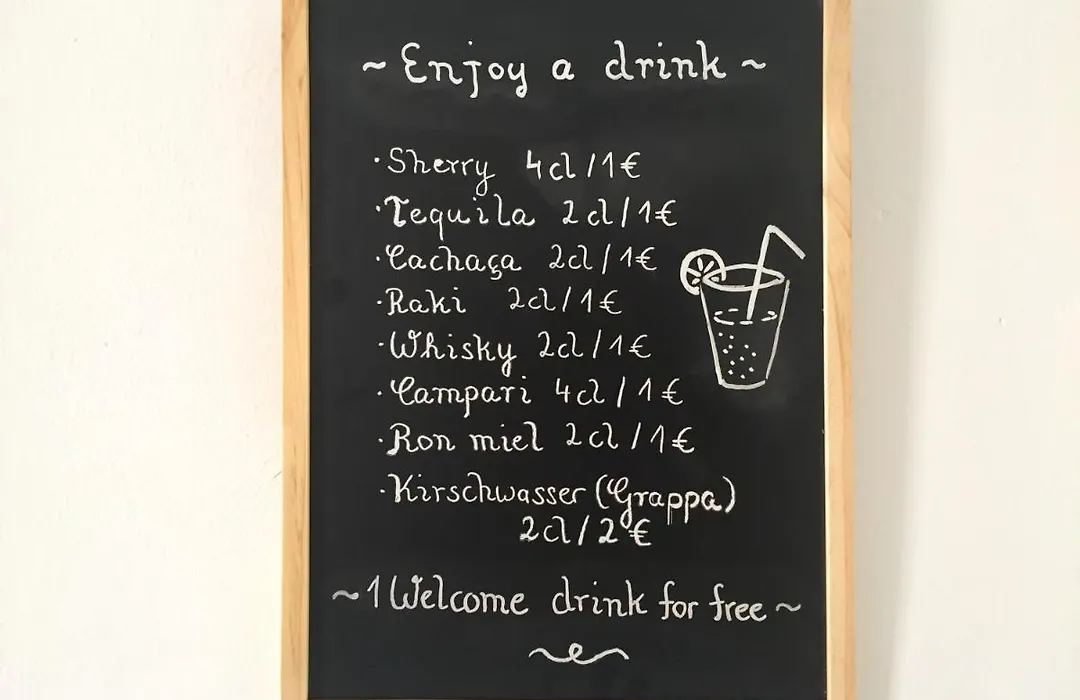 ~ Enjoy a drink ~
· Sherry 4cl / 1€
· Tequila 2cl / 1€
· Cachaça 2cl / 1€
· Raki 2cl / 1€
· Whisky 2cl / 1€
· Campari 4cl / 1€
· Ron miel 2cl / 1€
· Kirschwasser (Grappa)
2cl / 2€
~ 1 Welcome drink for free ~